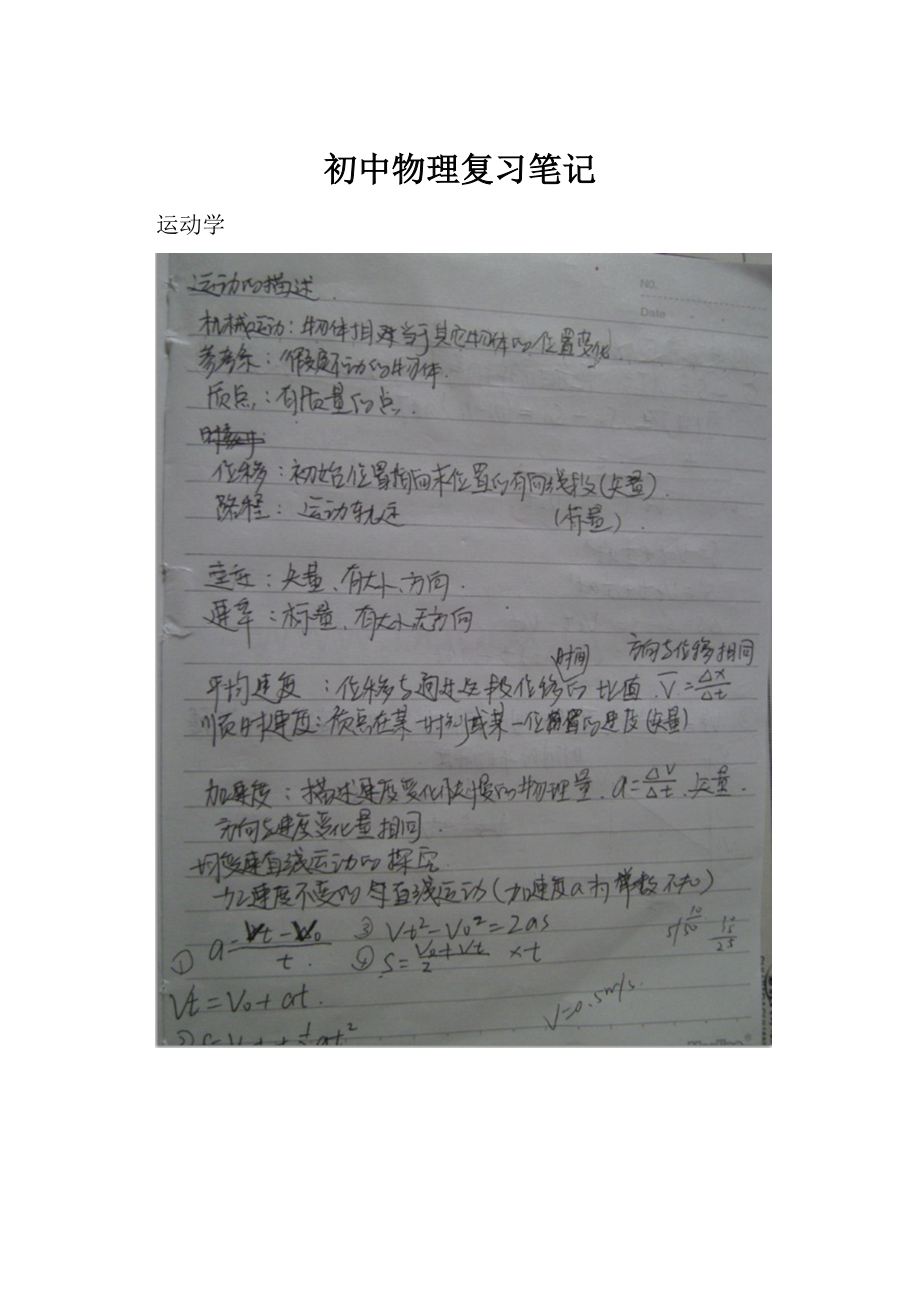 初中物理复习笔记
运动学
No.
Date
运动的描述.
机械运动：物体相对当于其它物体的位置变化.
参考系：假定不动的物体.
质点：有质量的点.
位移：初始位置指向末位置的有向线段(矢量).
路程：运动轨迹 (标量).
速度：矢量、有大小、方向.
速率：标量、有大小无方向
时间 方向与位移相同
平均速度：位移与通过这段位移的比值. V̄=Δx/Δt
顺时速度：质点在某一时刻或某一位置的速度(矢量)
加速度：描述速度变化快慢的物理量. a=ΔV/Δt. 矢量.
方向与速度变化量相同.
匀变速直线运动的探究
加速度不变的直线运动(加速度a为常数不变)
① a=(Vt-V0)/t. ③ Vt²-V0²=2as
④ S=(V0+Vt)/2 ×t
Vt=V0+at.
V=0.5m/s.